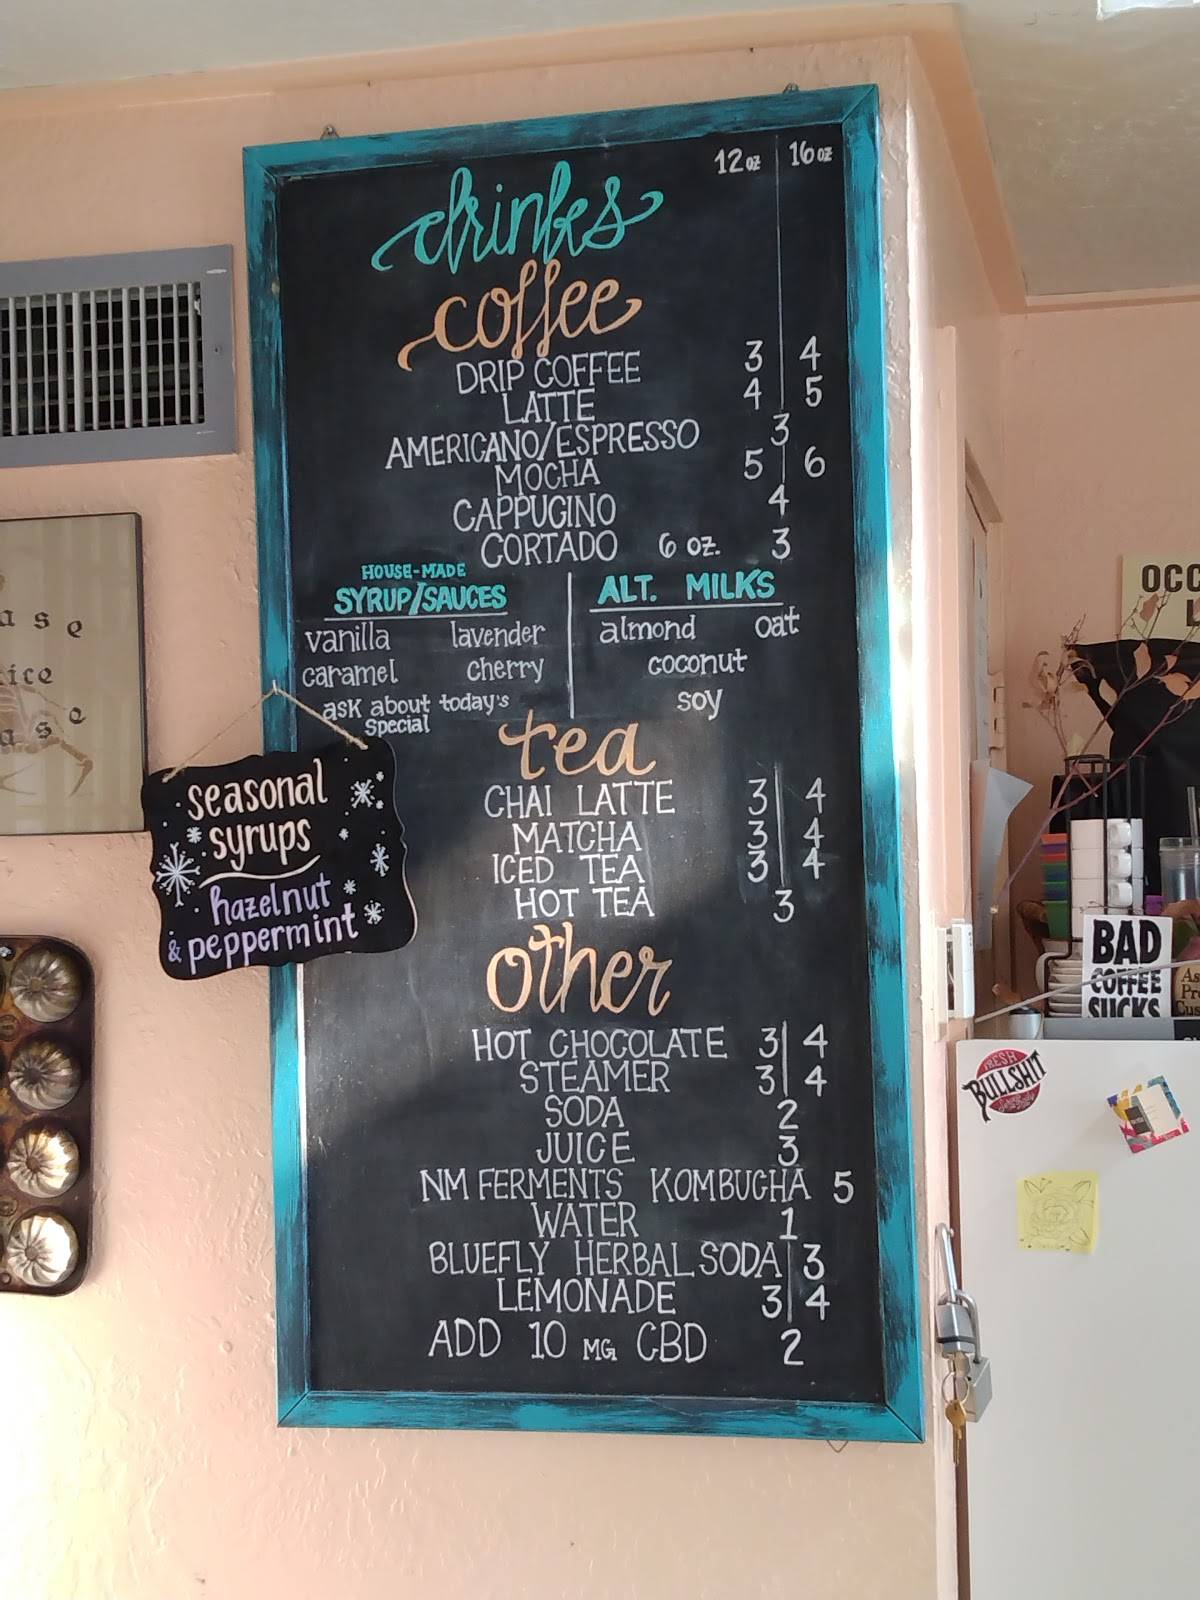 12 oz 16 oz
drinks
coffee
DRIP COFFEE 3 4
LATTE 4 5
AMERICANO/ESPRESSO 3
MOCHA 5 6
CAPPUGINO 4
CORTADO 6 OZ. 3
HOUSE-MADE
SYRUP/SAUCES
vanilla lavender
caramel cherry
ask about today's
special
ALT. MILKS
almond oat
coconut
soy
seasonal
syrups
hazelnut
& peppermint
tea
CHAI LATTE 3 4
MATCHA 3 4
ICED TEA 3 4
HOT TEA 3
other
HOT CHOCOLATE 3 4
STEAMER 3 4
SODA 2
JUICE 3
NM FERMENTS KOMBUCHA 5
WATER 1
BLUEFLY HERBAL SODA 3
LEMONADE 3 4
ADD 10 MG CBD 2
BAD
COFFEE
SUCKS
FRESH
BULLSHIT